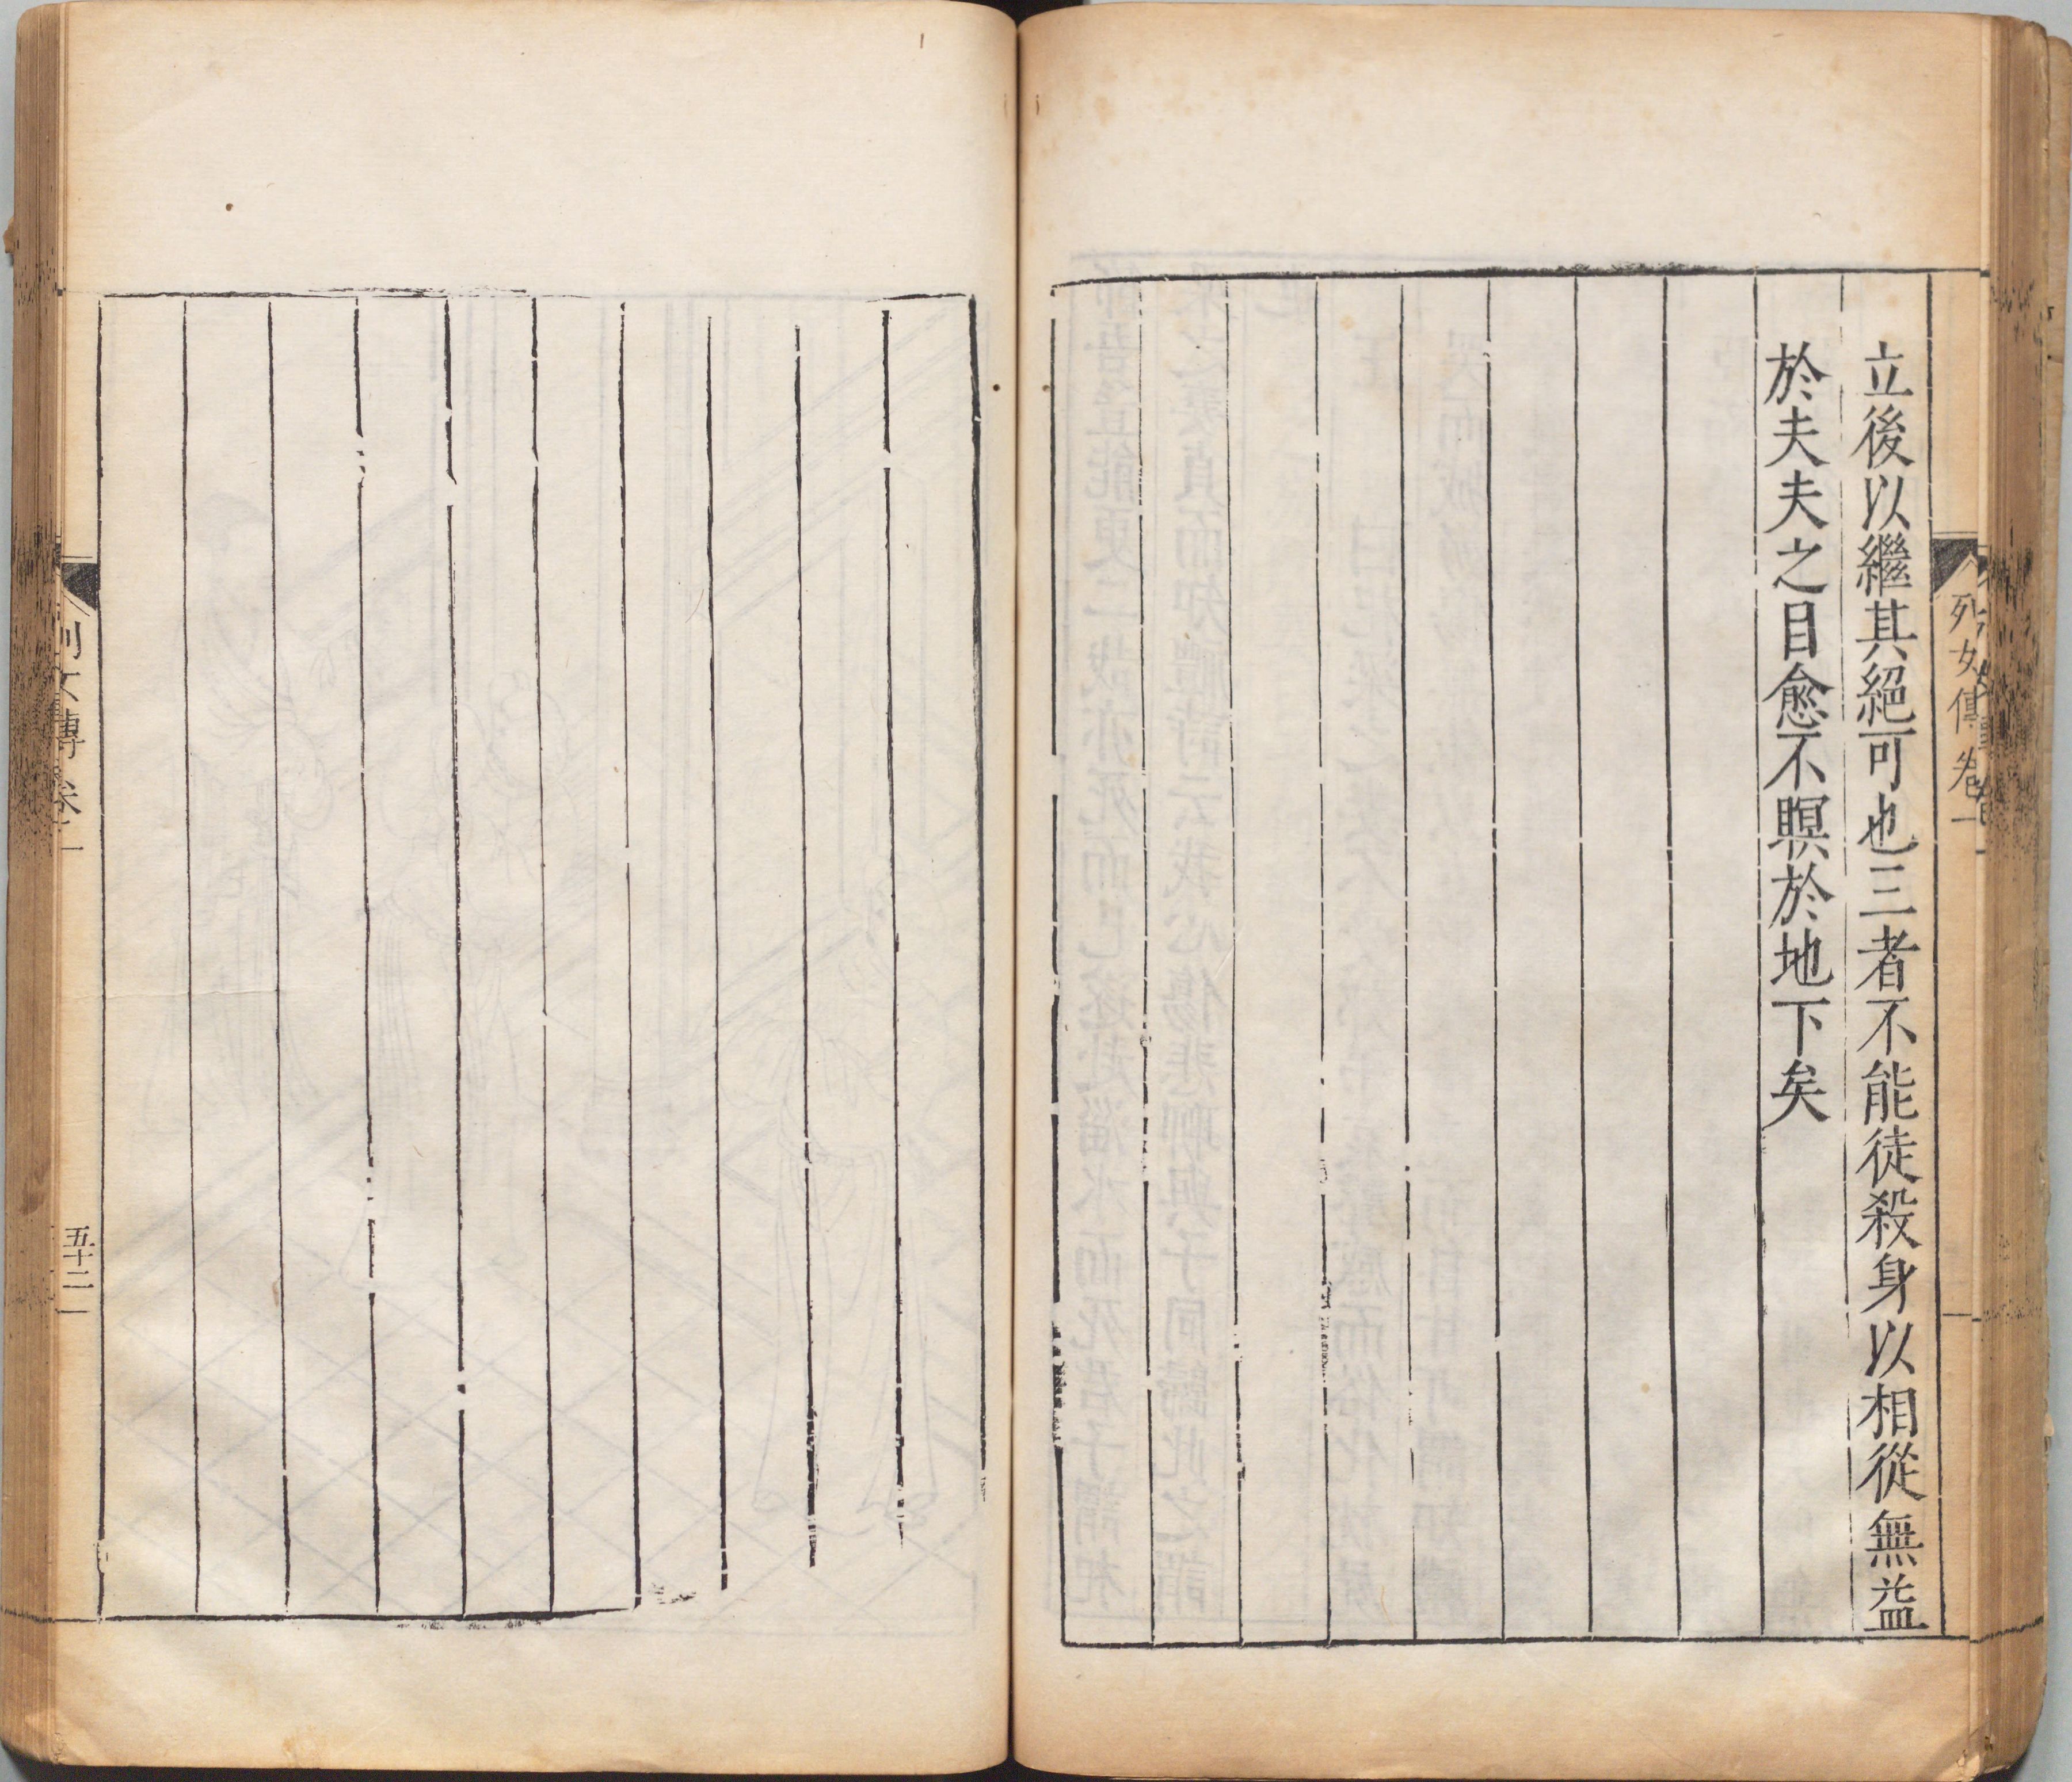 列女傳卷一
立後以繼其絕可也三者不能徒殺身以相從無益
於夫夫之目愈不瞑於地下矣
列女傳卷一
五十二